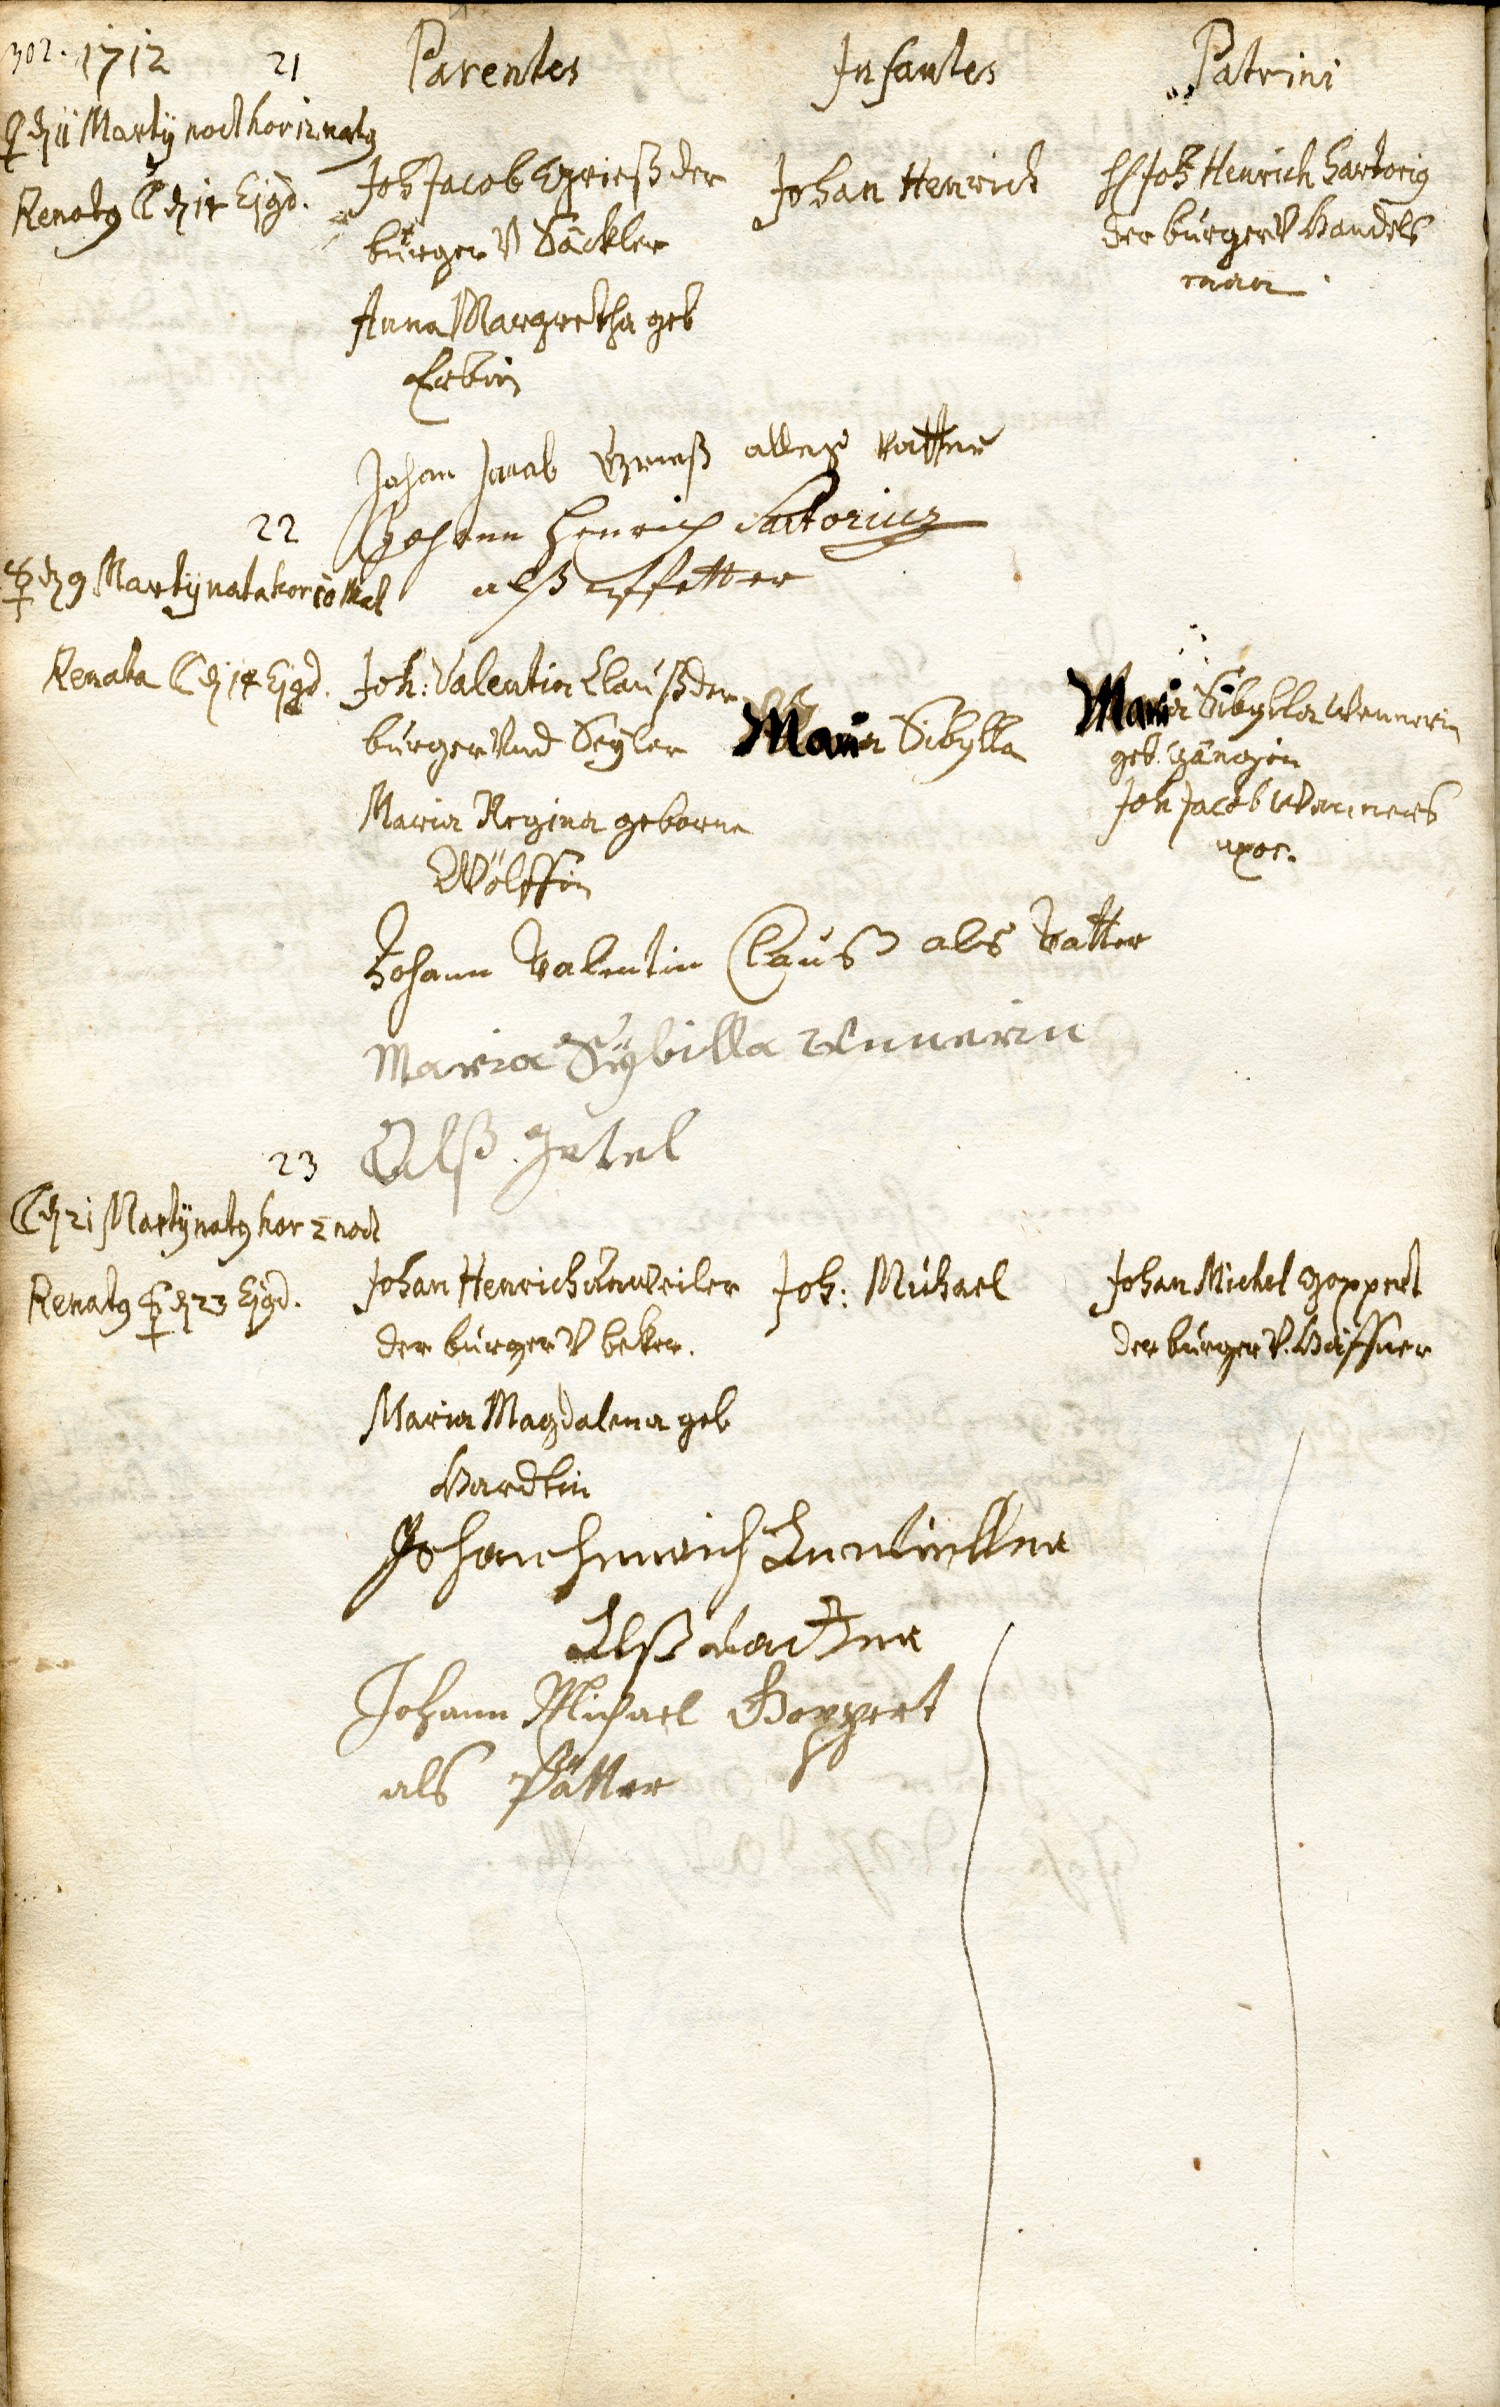 302. 1712 21 Parentes Infantes Patrini
♀ d 11 Martij noct hor 12 natg
Renatg ☾ d 14 Ejgd.
Joh Jacob Grieß der
burger V Säckler
Anna Margretha geb
Erbin
Johan Henrich
H Joh Henrich Sartorig
der burger V Handels
man
Johan Jacob Grieß alles Vatter
Johann Henrich Sartorius
alß Pfetter
22
☿ d 9 Martij nata hor 10
Renata ☾ d 14 Ejgd.
Joh: Valentin Clauß der
burger Und Seyler
Maria Regina geborne
Wölffin
Maria Sibylla
Maria Sibylla Wennerin
geb.
Joh Jacob Wenners
uxor.
Johann Valentin Clauß als Vatter
Maria Sÿbilla Wennerin
Alß Götel
23
☾ d 21 Martij natg hor 2 noct
Renatg ☿ d 23 Ejgd.
Johan Henrich Anweiler
der burger V beker.
Maria Magdalena geb
Hardtin
Joh: Michael
Johan Michel Goppert
der burger V. Häffner
Johan Henrich
Alß Vatter
Johann Michael Goppert
als Pätter